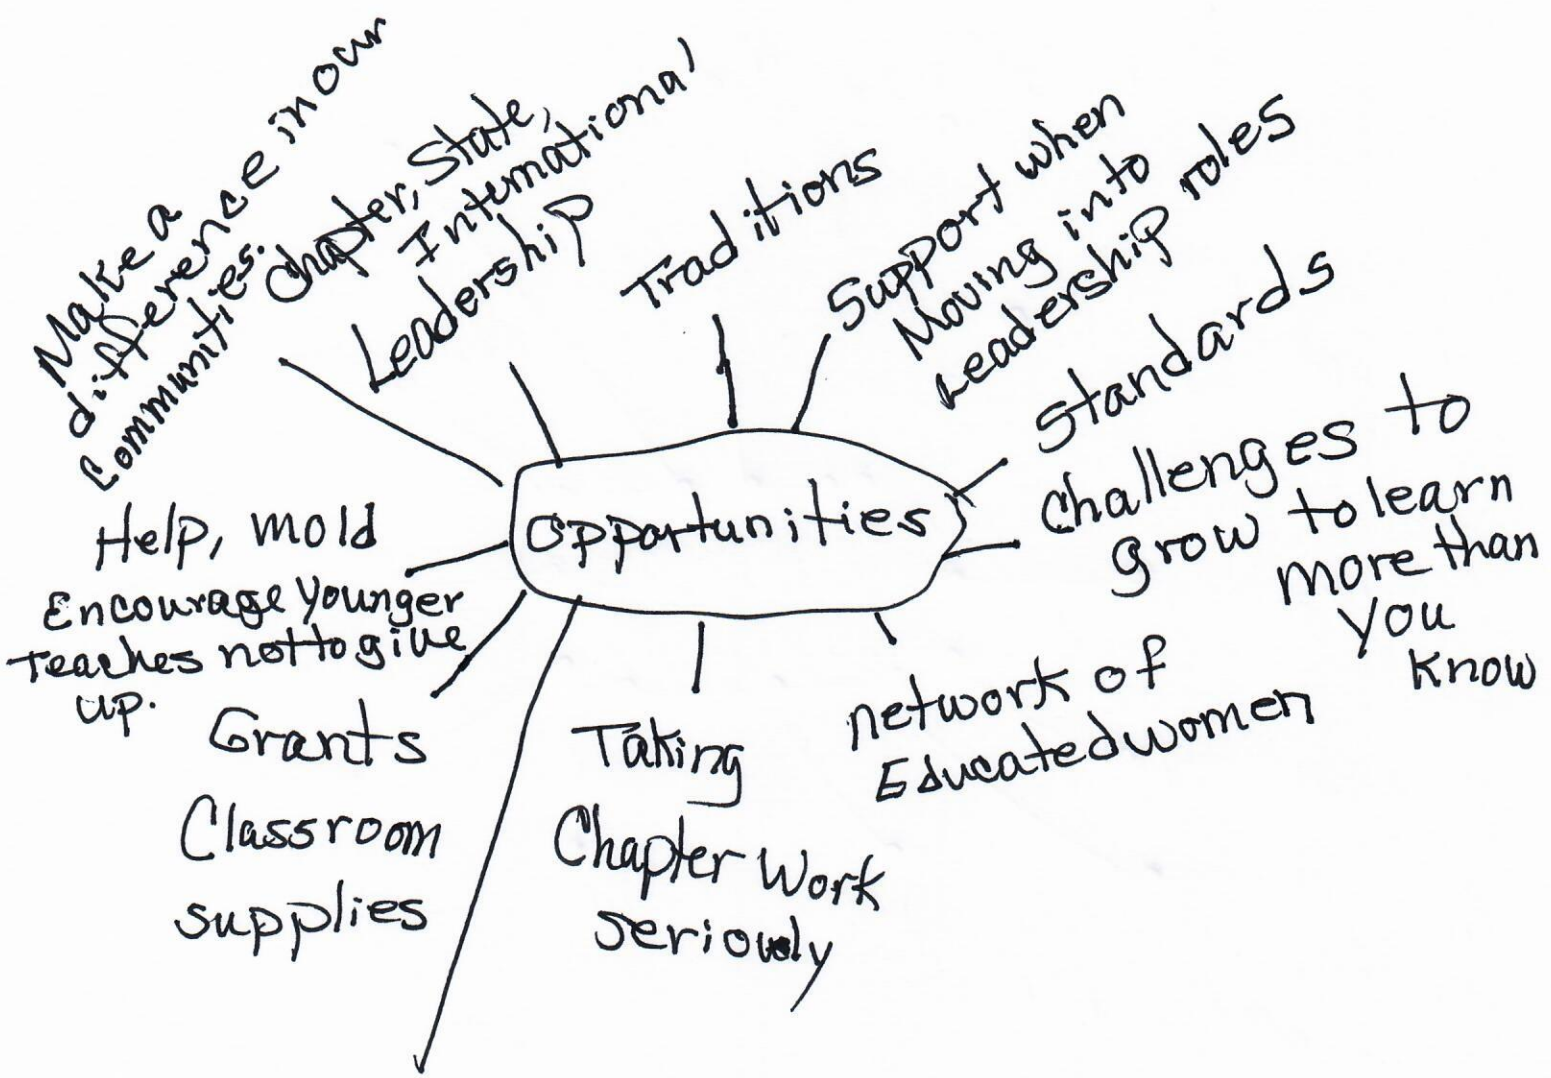 Make a
difference in our
Communities.
Chapter, State,
International
Leadership
Traditions
Support when
Moving into
Leadership roles
Standards
Challenges to
grow to learn
more than
you
know
Opportunities
network of
Educated women
Taking
Chapter Work
seriously
Grants
Classroom
supplies
Help, mold
Encourage younger
Teaches not to give
up.